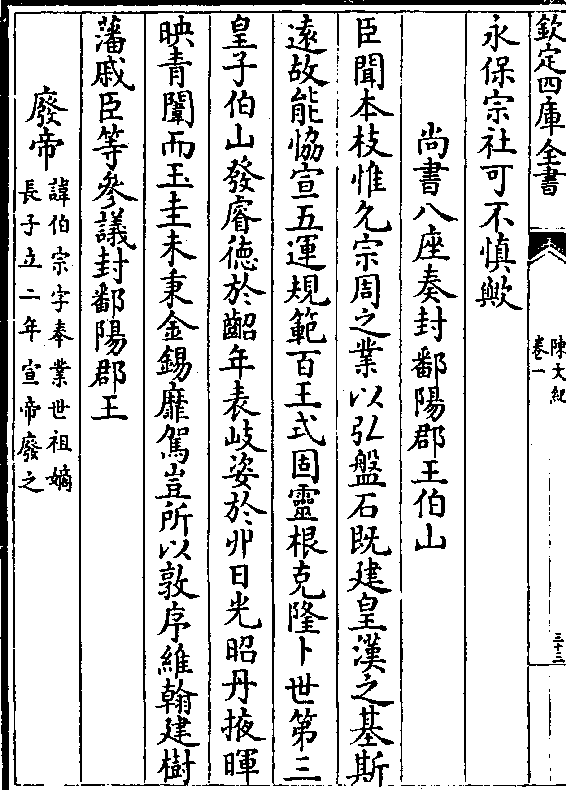 欽定四庫全書
陳文紀
卷一
三十三
永保宗社可不慎歟
尚書八座奏封鄱陽郡王伯山
臣聞本枝惟允宗周之業以弘盤石既建皇漢之基斯
遠故能恊宣五運規範百王式固靈根克隆卜世第三
皇子伯山發睿德於齠年表岐姿於丱日光昭丹掖暉
映青闈而玉圭未秉金錫靡駕豈所以敦序維翰建樹
藩戚臣等參議封鄱陽郡王
廢帝
諱伯宗字奉業世祖嫡
長子立二年宣帝廢之